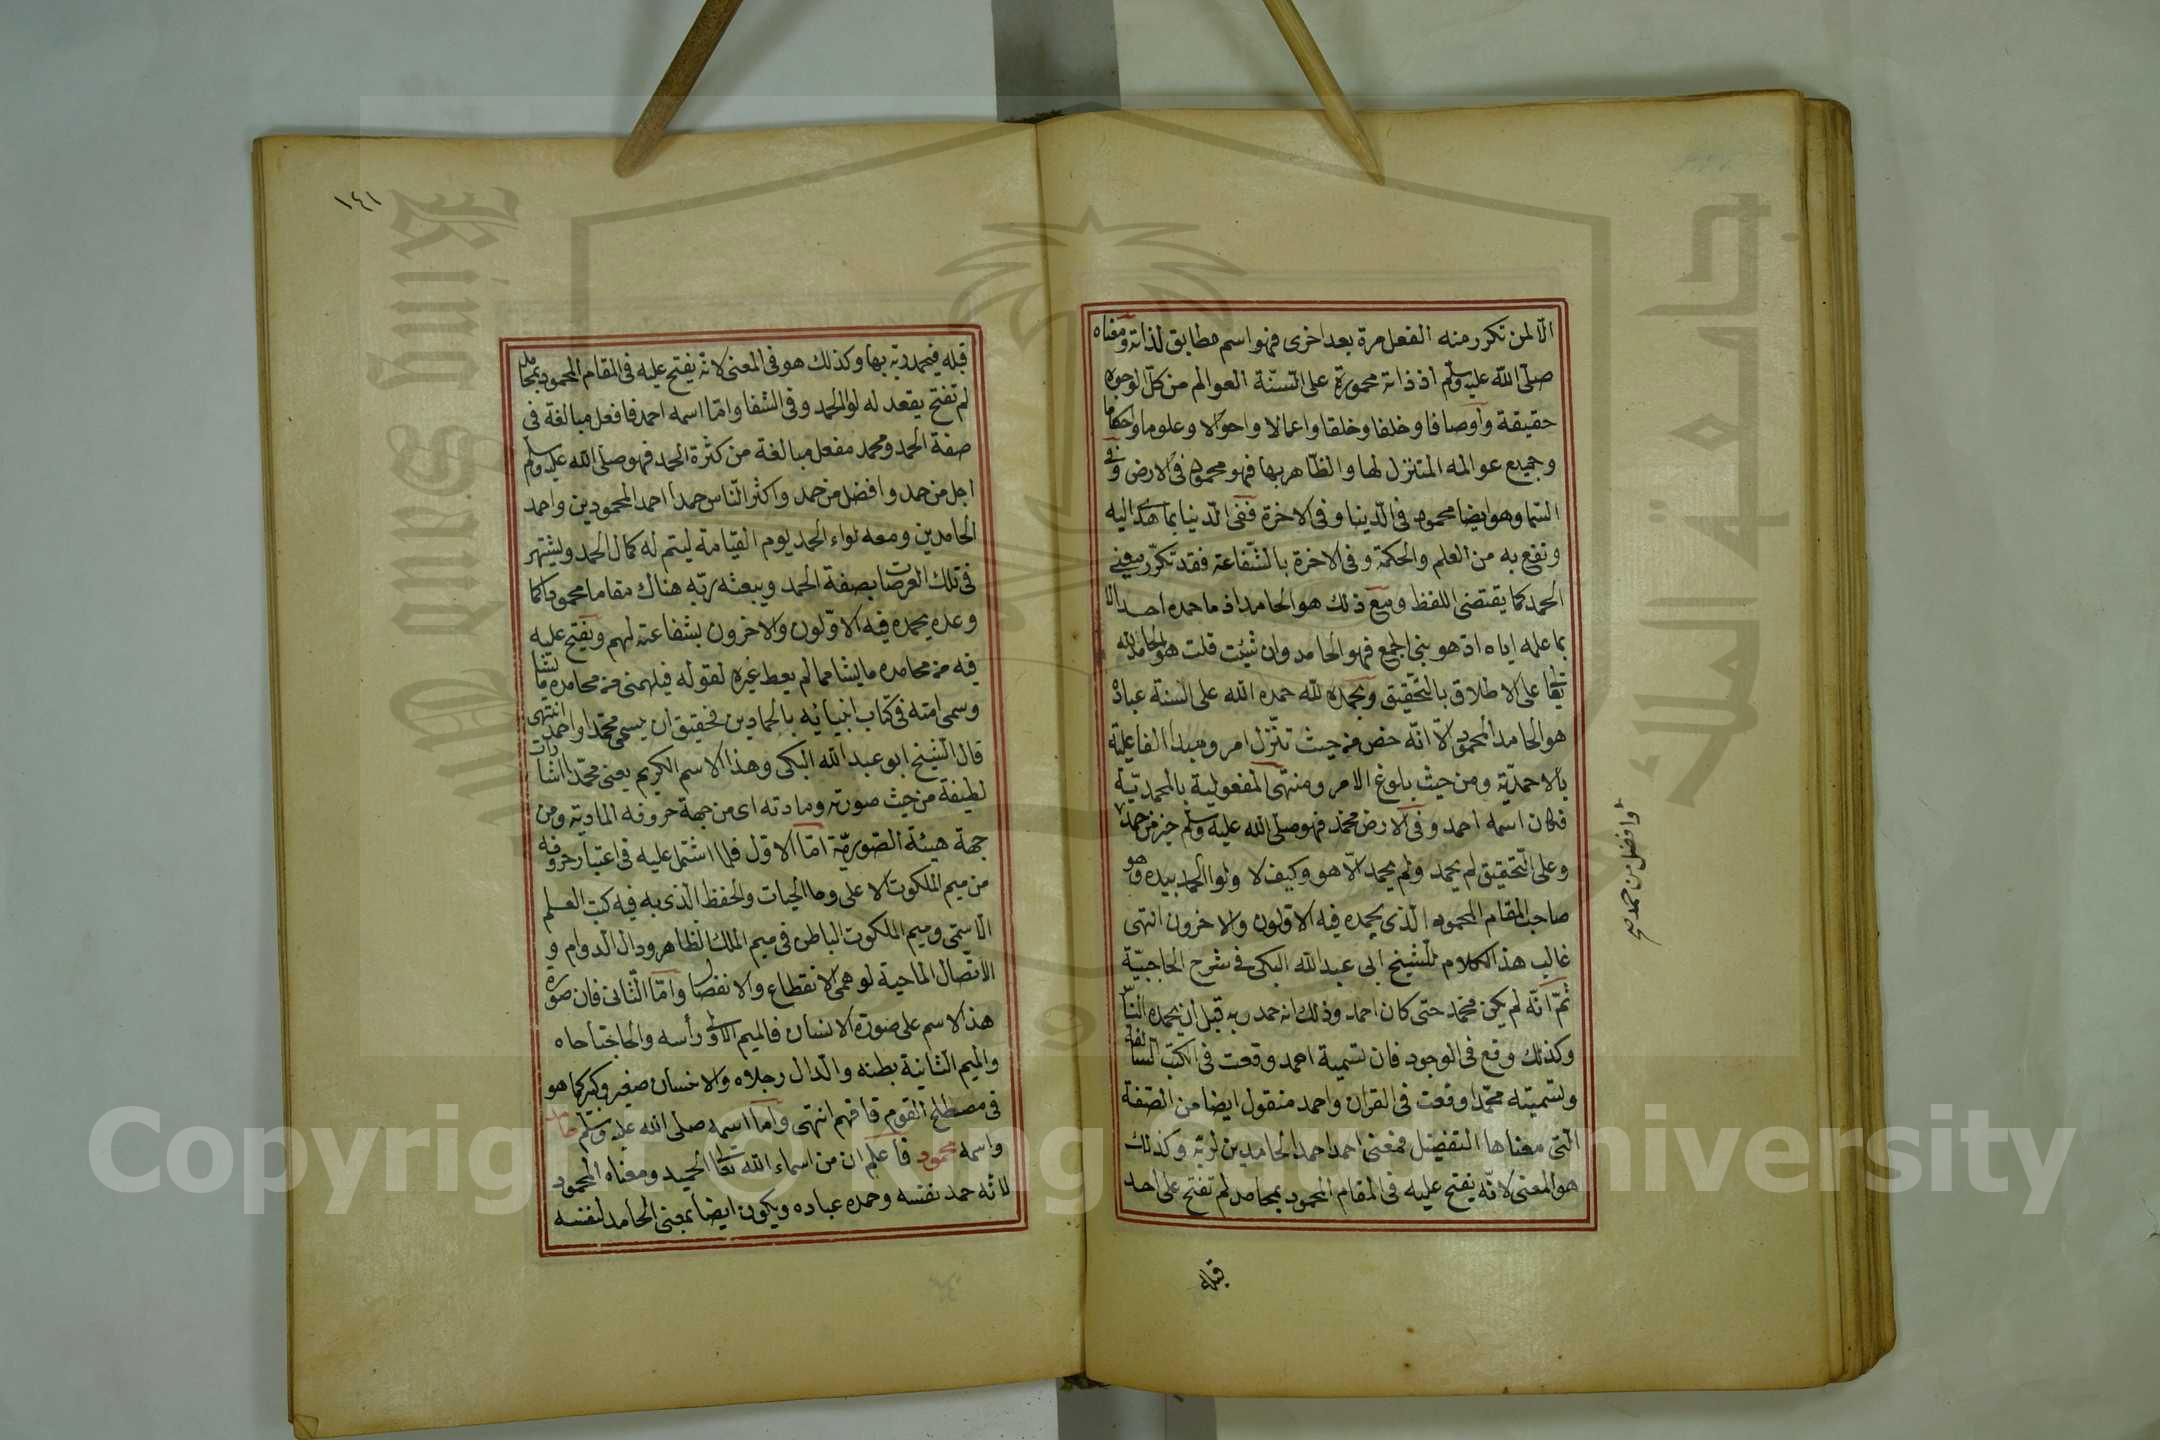 الا لمن تكرر منه الفعل مرة بعد اخرى فهو اسم مطابق لذاته ومعناه
صلى الله عليه وسلم اذ ذاته محمودة على السنة العوالم من كل الوجوه
حقيقة واوصافا وخلفا وخلقا واعمالا واحوالا وعلوما واحكاما
وجميع عوالمه المتنزل لها والظاهر بها فهو محمود في الارض وفي
السما وهو ايضا محمود في الدينا وفي الاخرة ففي الدنيا بما هدى اليه
ونفع به من العلم والحكمة وفي الاخرة بالشفاعة فقد تكرر معنى
الحمد كما يقتضى اللفظ ومع ذلك هو الحامد اذ ما حمده احد الا
بما علمه اياه اذ هو نبى الجمع فهو الحامد وان شئت قلت هو الحامد لله
تعالى على الاطلاق بالتحقيق وبحمده لله حمده الله على السنة عباده
هو الحامد المحمود الا انه خص من حيث تنزل امر ومبدا الفاعلية
بالاحمدية ومن حيث بلوغ الامر ومنتهى المفعولية بالمحمدية
فكان اسمه احمد وفي الارض محمد فهو صلى الله عليه وسلم خير من حمد
وعلى التحقيق لم يحمد ولم يحمد الا هو وكيف لا ولوا الحمد بيده وهو
صاحب المقام المحمود الذى يحمده فيه الاولون والاخرون انتهى
غالب هذا الكلام للشيخ ابى عبد الله البكى في شرح الحاجبية
ثم انه لم يكن محمد حتى كان احمد وذلك انه حمد ربه قبل ان يحمده الناس
وكذلك وقع في الوجود فان تسمية احمد وقعت في الكتب السالفة
وتسميته محمدا وقعت في القران واحمد منقول ايضا من الصفة
التى معناها التفضيل فمعنى احمد احمد الحامدين لربه وكذلك
هو المعنى لانه يفتح عليه في المقام المحمود بمحامد لم تفتح على احد
وافضل من حمد صح
قبله
١٤١
قبله فيحمد ربه بها وكذلك هو في المعنى لانه يفتح عليه في المقام المحمود بمحامد
لم تفتح يقعد له لوا الحمد وفي الشفا واما اسمه احمد فافعل مبالغة في
صفة الحمد ومحمد مفعل مبالغة من كثرة الحمد فهو صلى الله عليه وسلم
اجل من حمد وافضل من حمد واكثر الناس حمدا احمد المحمودين واحمد
الحامدين ومعه لواء الحمد يوم القيامة ليتم له كمال الحمد ويشتهر
في تلك العرصات بصفة الحمد ويبعثه ربه هناك مقاما محمودا كما
وعده يحمده فيه الاولون والاخرون بشفاعته لهم ويفتح عليه
فيه من محامده ما يشا مما لم يعط غيره لقوله فيلهمنى من محامده ما يشا
وسمى امته في كتاب انبيائه بالحمادين فحقيق ان يسمى محمدا واحمد انتهى
قال الشيخ ابو عبد الله البكى وهذا الاسم الكريم يعنى محمدا اشارات
لطيفة من حيث صورته ومادته اى من جهة حروفه المادية ومن
جهة هيئة الصورية اما الاول فلما اشتمل عليه في اعتبار حروفه
من ميم الملكوت الاعلى وحا الحيات والحفظ الذى به فيه كتب العلم
الاسمى وميم الملكوت الباطن في ميم الملك الظاهر ودال الدوام و
الاتصال الماحية لوهمى الانقطاع والانفصال واما الثانى فان صورة
هذا الاسم على صورة الانسان فالميم الاولى رأسه والحا جناحاه
والميم الثانية بطنه والدال رجلاه والانسان صغير وكبير كما هو
في مصطلح القوم فافهم انتهى واما اسمه صلى الله عليه وسلم حامد
واسمه محمود فاعلم ان من اسماء الله تعالى الحميد ومعناه المحمود
لانه حمد نفسه وحمده عباده ويكون ايضا بمعنى الحامد لنفسه
جامعة الملك سعود
King Saud University
Copyright © King Saud University